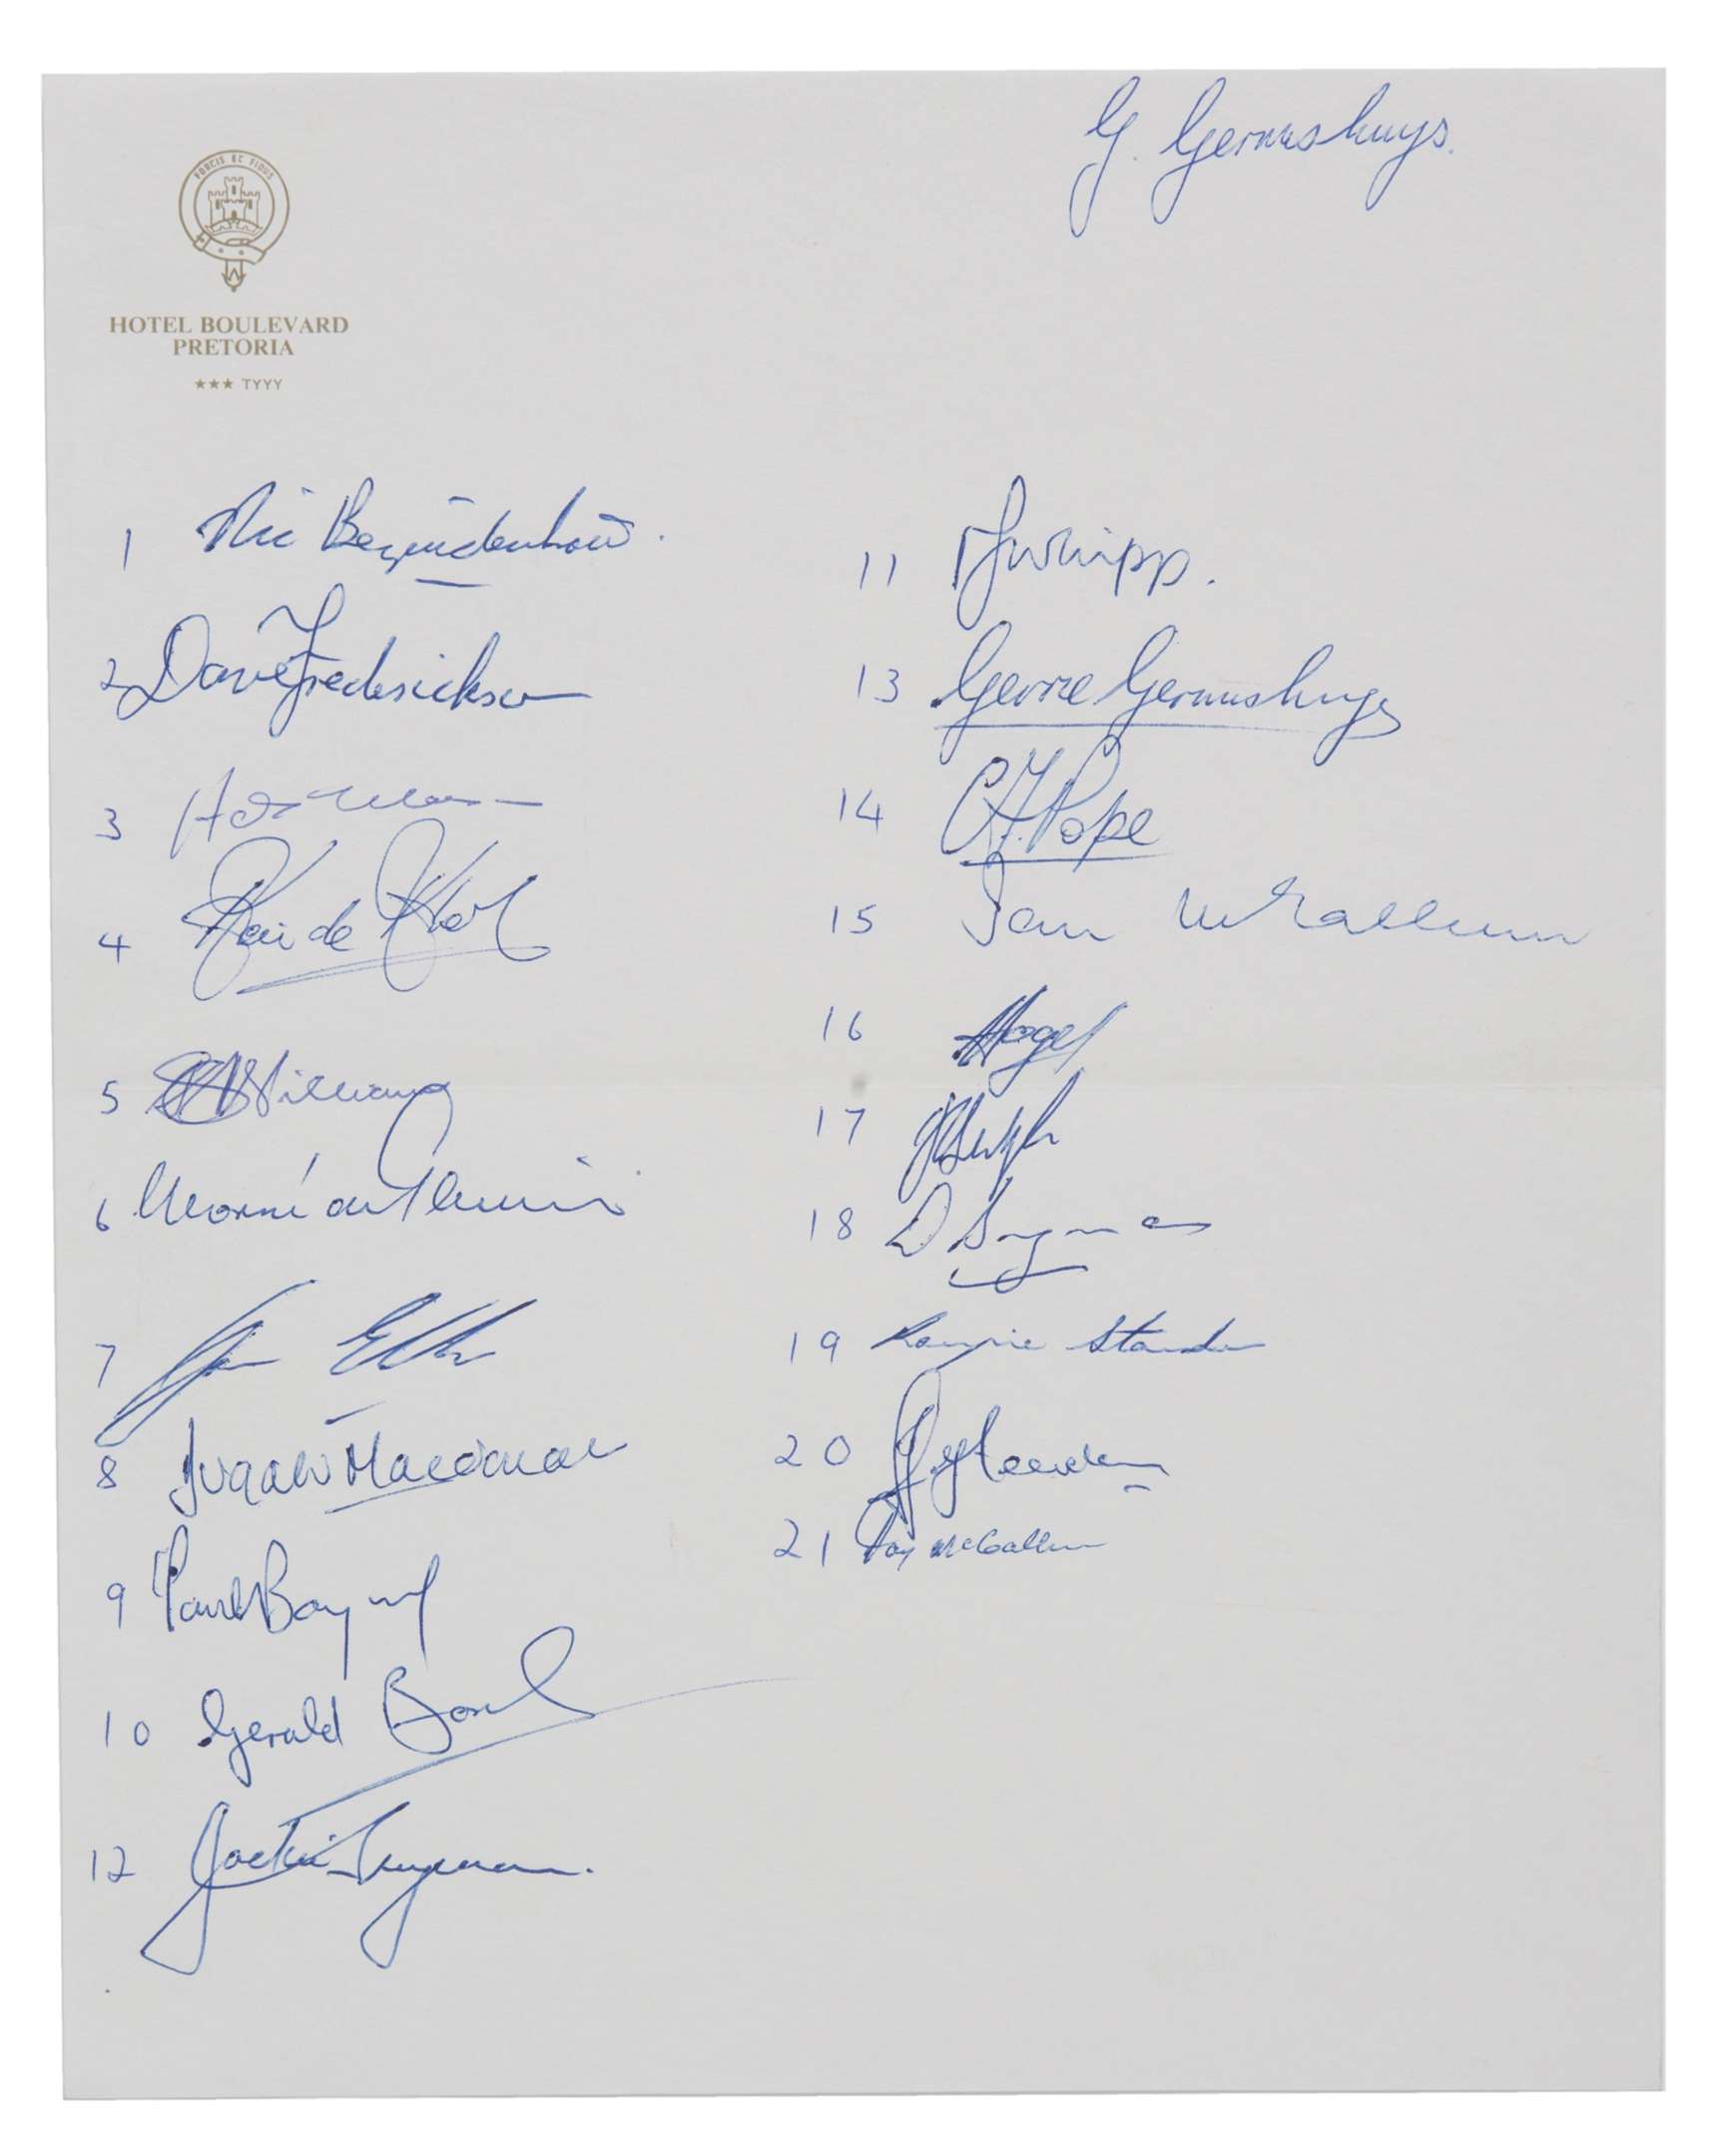 G. Germishuys.
FORCIS ET FIDUS
HOTEL BOULEVARD
PRETORIA
★★★ TYYY
1 Nic Bezuidenhout.
2 Dave Frederickson
3
4
5 Williams
6 Morné du Plessis
7 Jan Ellis
8 Dugald Macdonald
9 Paul Bayvel
10 Gerald Bosch
12 Jackie Snyman.
11 Whipp.
13 Gerrie Germishuys
14 C. Pope
15 Ian McCallum
16
17
18 D Snyman
19 Rampie Stander
20
21 Roy McCallum